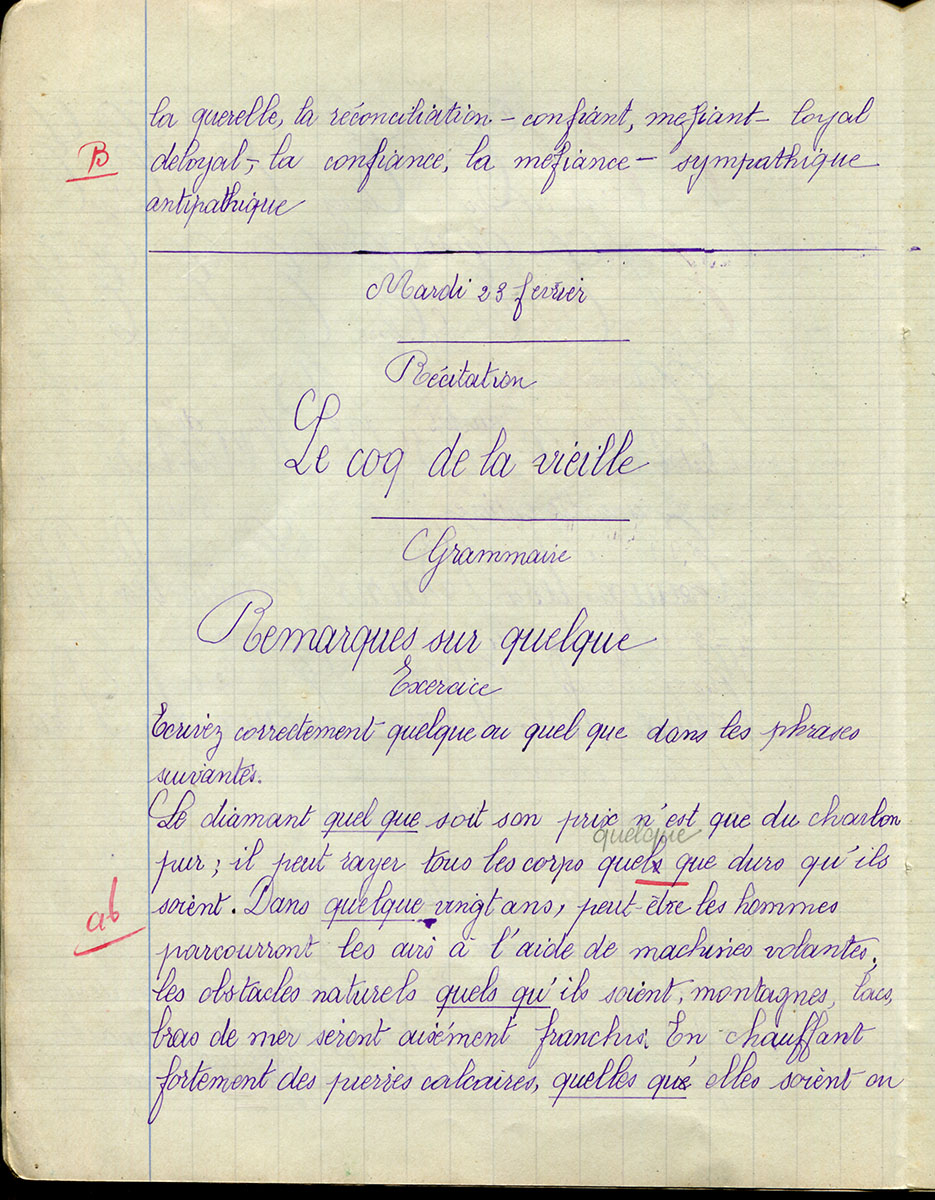 la querelle, la réconciliation - confiant, mefiant - loyal
B
deloyal -, la confiance, la mefiance - sympathique
antipathique
Mardi 23 fevrier
Récitation
Le coq de la vieille
Grammaire
Remarques sur quelque
Exercice
Ecrivez correctement quelque ou quel que dans les phrases
suivantes.
Le diamant quel que soit son prix n'est que du charbon
quelque
pur ; il peut rayer tous les corps quels que durs qu'ils
ab
soient. Dans quelque vingt ans, peut-être les hommes
parcourront les airs à l'aide de machines volantes,
les obstacles naturels quels qu'ils soient, montagnes, lacs,
bras de mer seront aisément franchis. En chauffant
fortement des pierres calcaires, quelles qu'elles soient on